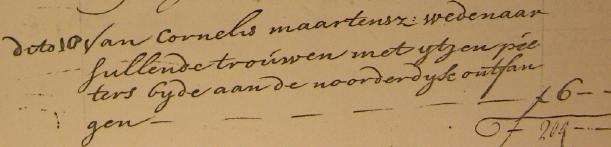 dcto 18 Van Cornelis maartensz: wedenaar
sullende trouwen met ytjen pie
ters byde aan de noorderdyk ontfan
gen — — — — — — — f 6 – –
f 209 –